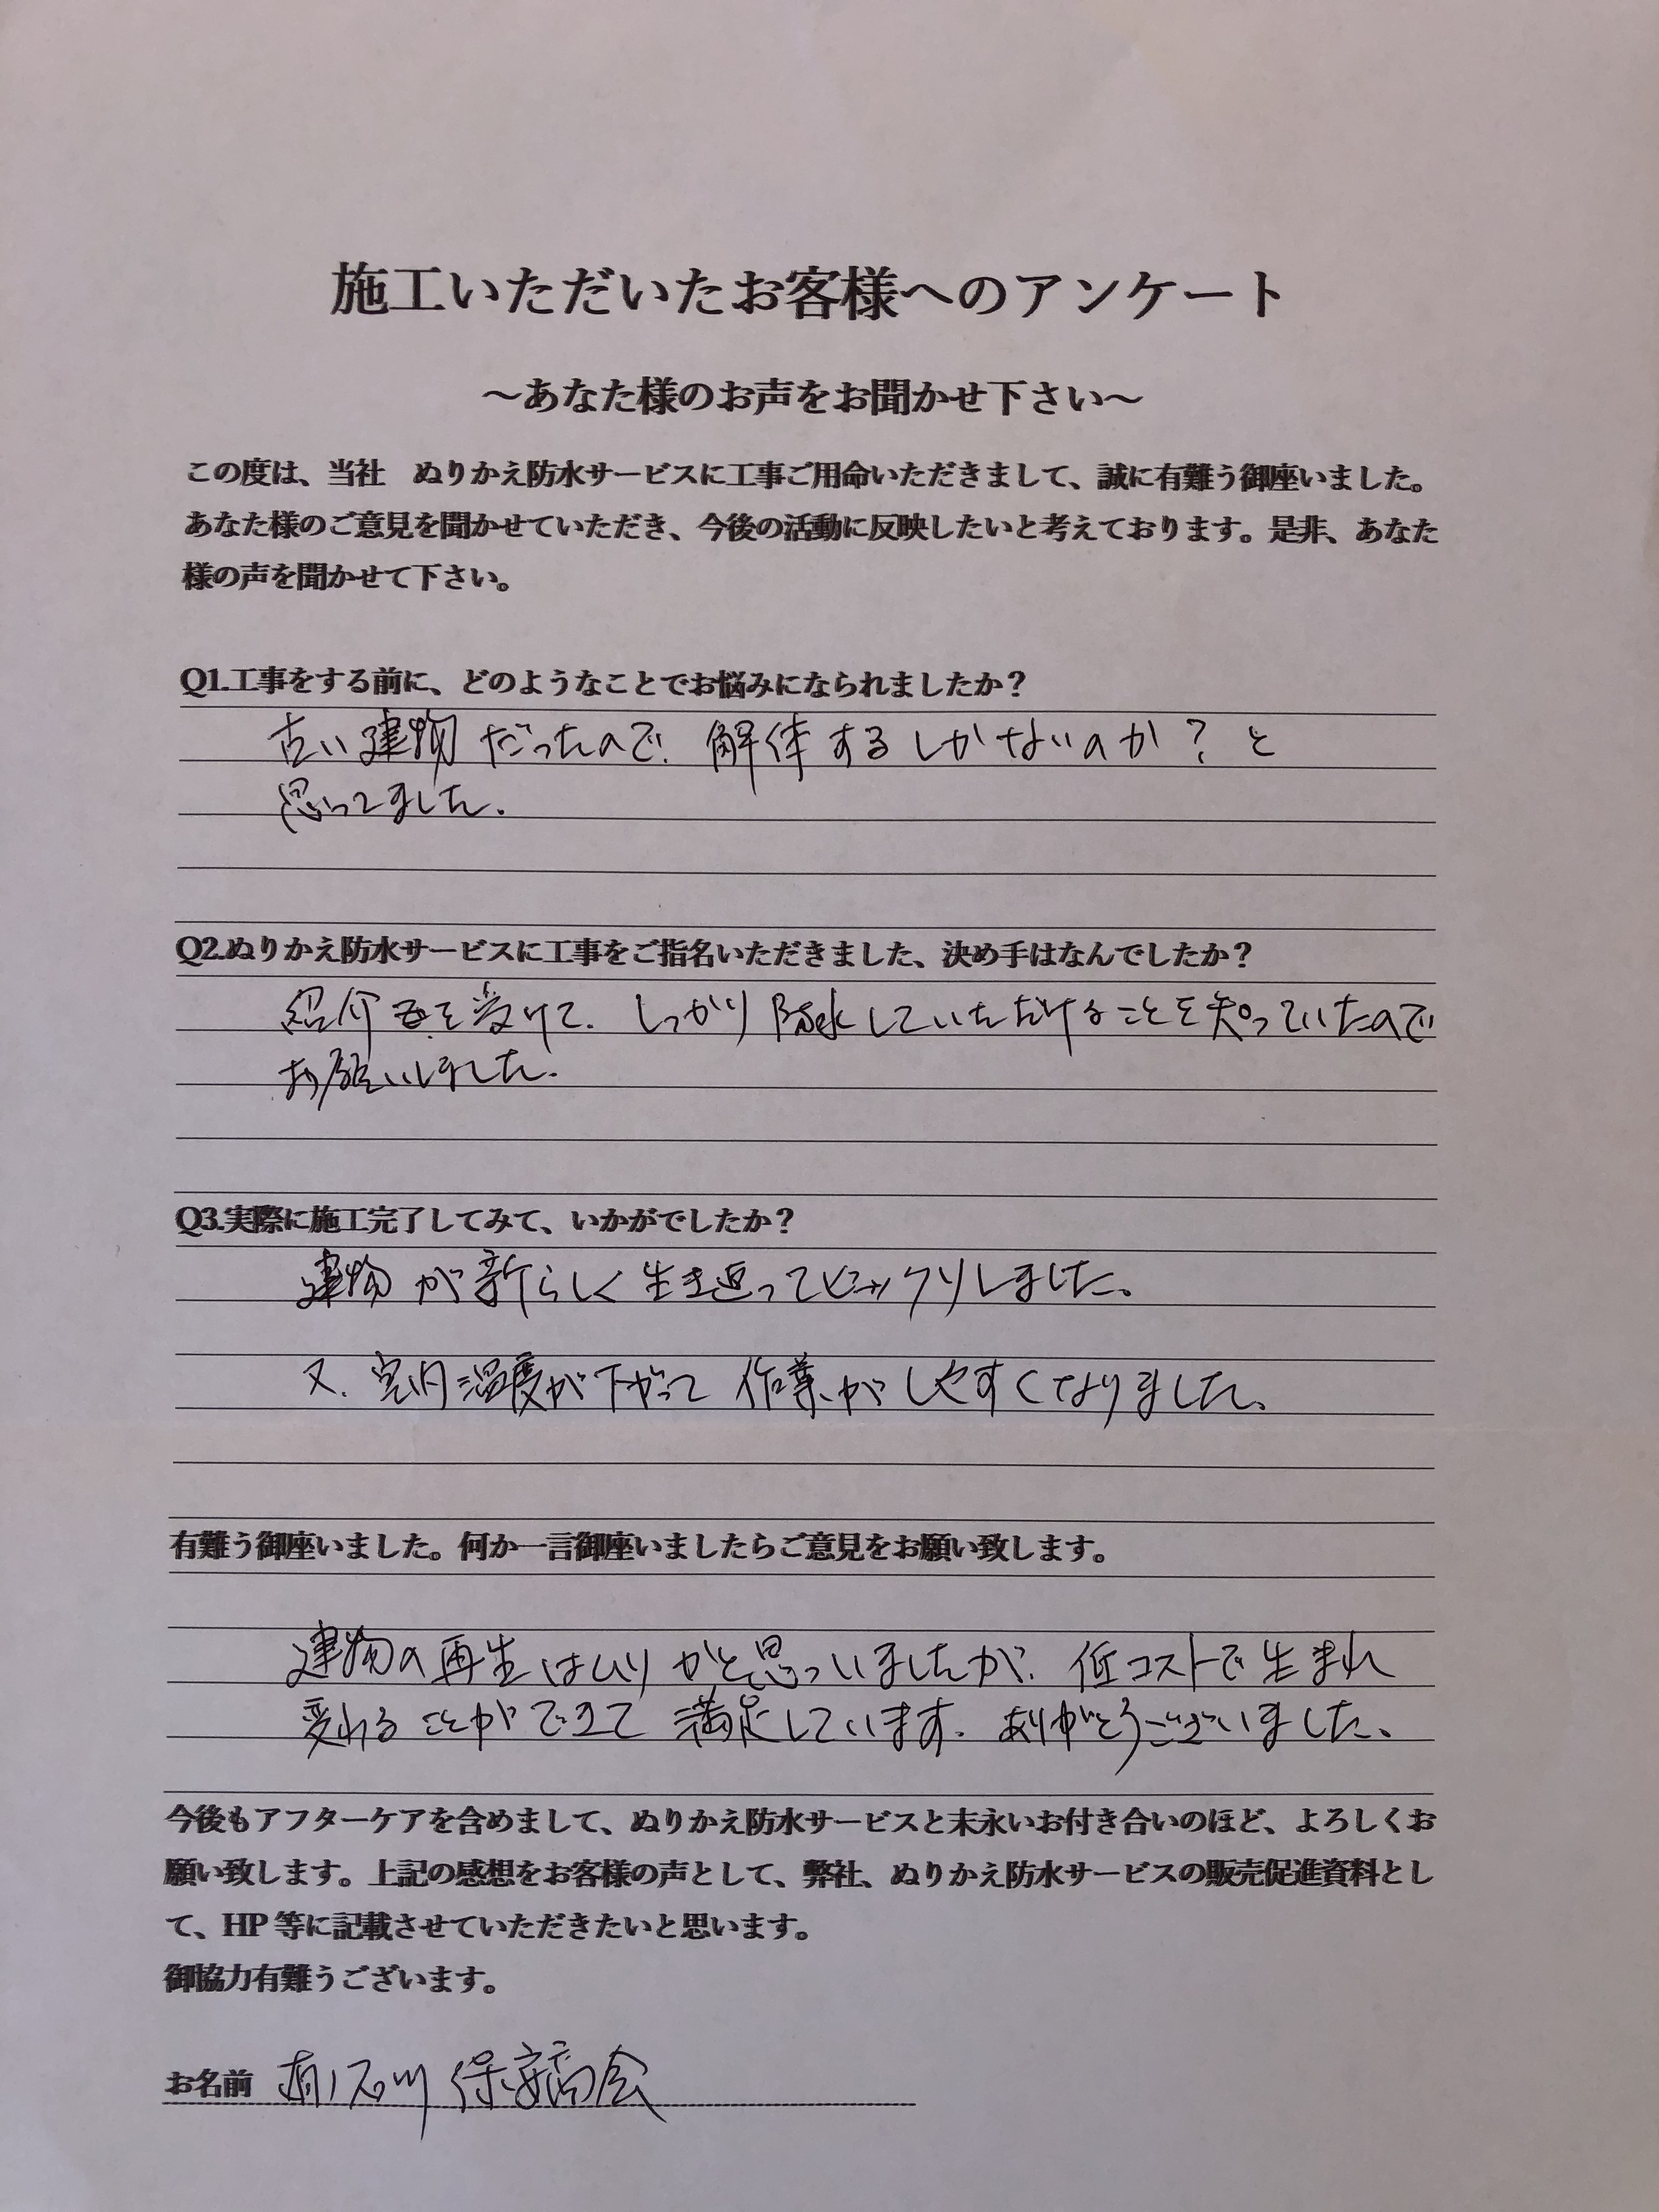 施工いただいたお客様へのアンケート
～あなた様のお声をお聞かせ下さい～
この度は、当社　ぬりかえ防水サービスに工事ご用命いただきまして、誠に有難う御座いました。
あなた様のご意見を聞かせていただき、今後の活動に反映したいと考えております。是非、あなた
様の声を聞かせて下さい。
Q1.工事をする前に、どのようなことでお悩みになられましたか？
古い建物だったので、解体するしかないのか？と
思ってました。
Q2.ぬりかえ防水サービスに工事をご指名いただきました、決め手はなんでしたか？
紹介を受けて、しっかり防水していただけることを知っていたので
お願いしました。
Q3.実際に施工完了してみて、いかがでしたか？
建物が新らしく生き返ってビックリしました。
又、室内温度が下がって作業がしやすくなりました。
有難う御座いました。何か一言御座いましたらご意見をお願い致します。
建物の再生はムリかと思っていましたが、低コストで生まれ
変れることができて満足しています。ありがとうございました、
今後もアフターケアを含めまして、ぬりかえ防水サービスと末永いお付き合いのほど、よろしくお
願い致します。上記の感想をお客様の声として、弊社、ぬりかえ防水サービスの販売促進資料とし
て、HP 等に記載させていただきたいと思います。
御協力有難うございます。
お名前 石川保安商会